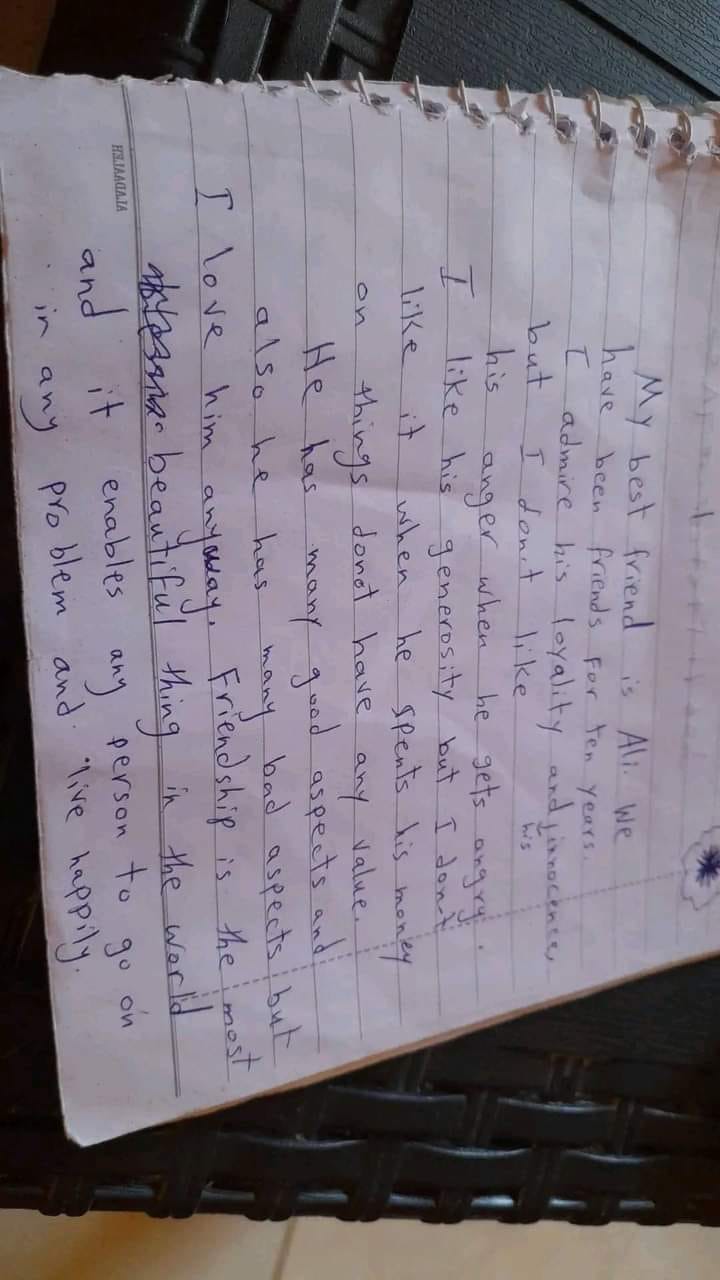 My best friend is Ali. We
have been friends for ten years.
I admire his loyality and innocence,
his
but I don't like
his anger when he gets angry.
I like his generosity but I don't
like it when he spents his money
on things donot have any value.
He has many good aspects and
also he has many bad aspects but
I love him anyway. Friendship is the most
beautiful thing in the world
and it enables any person to go on
in any problem and live happily.